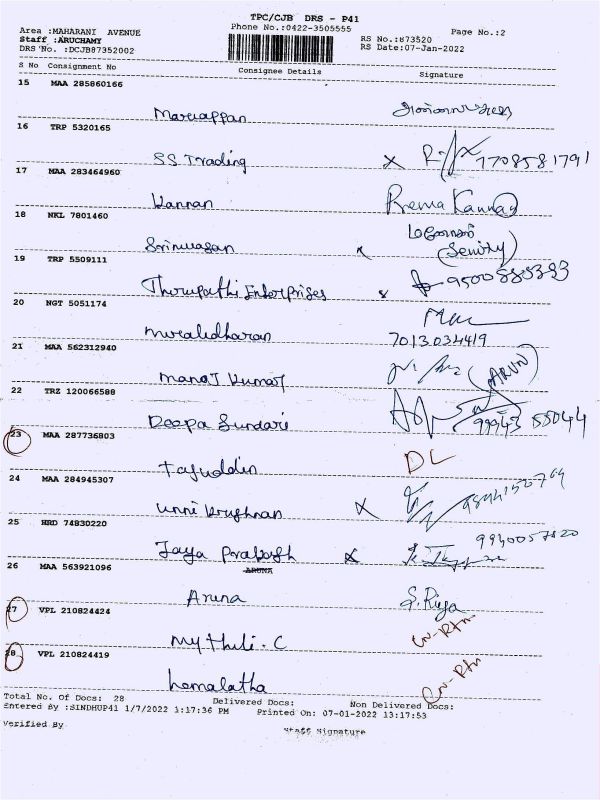 TPC/CJB DRS - P41
Area :MAHARANI AVENUE Phone No.:0422-3505555 Page No.:2
Staff :ARUCHAMY RS No.:873520
DRS No. :DCJB87352002 RS Date:07-Jan-2022
S No Consignment No Consignee Details Signature
15 MAA 285860166
Maruappan
16 TRP 5320165
SS Trading X 7708581791
17 MAA 283464960
Kannan Prema Kannan
18 NKL 7801460
Srinivasan x
19 TRP 5509111
Thirupathi Enterprises x
20 NGT 5051174
Muralidharan 7013034419
21 MAA 562312940
Manoj Kumar (ARUN)
22 TRZ 120066588
Deepa Sundari 99943 55044
23 MAA 287736803
Tajuddin DL
24 MAA 284945307
Unni Krishnan X
25 HRD 74830220
Jaya Prakash x
26 MAA 563921096 ARUNA
Aruna S. Riya
27 VPL 210824424
Mythili.C Cn-Rtn
28 VPL 210824419
Hemalatha Cn-Rtn
Total No. Of Docs: 28 Delivered Docs: Non Delivered Docs:
Entered By :SINDHUP41 1/7/2022 1:17:36 PM Printed On: 07-01-2022 13:17:53
Verified By Staff Signature